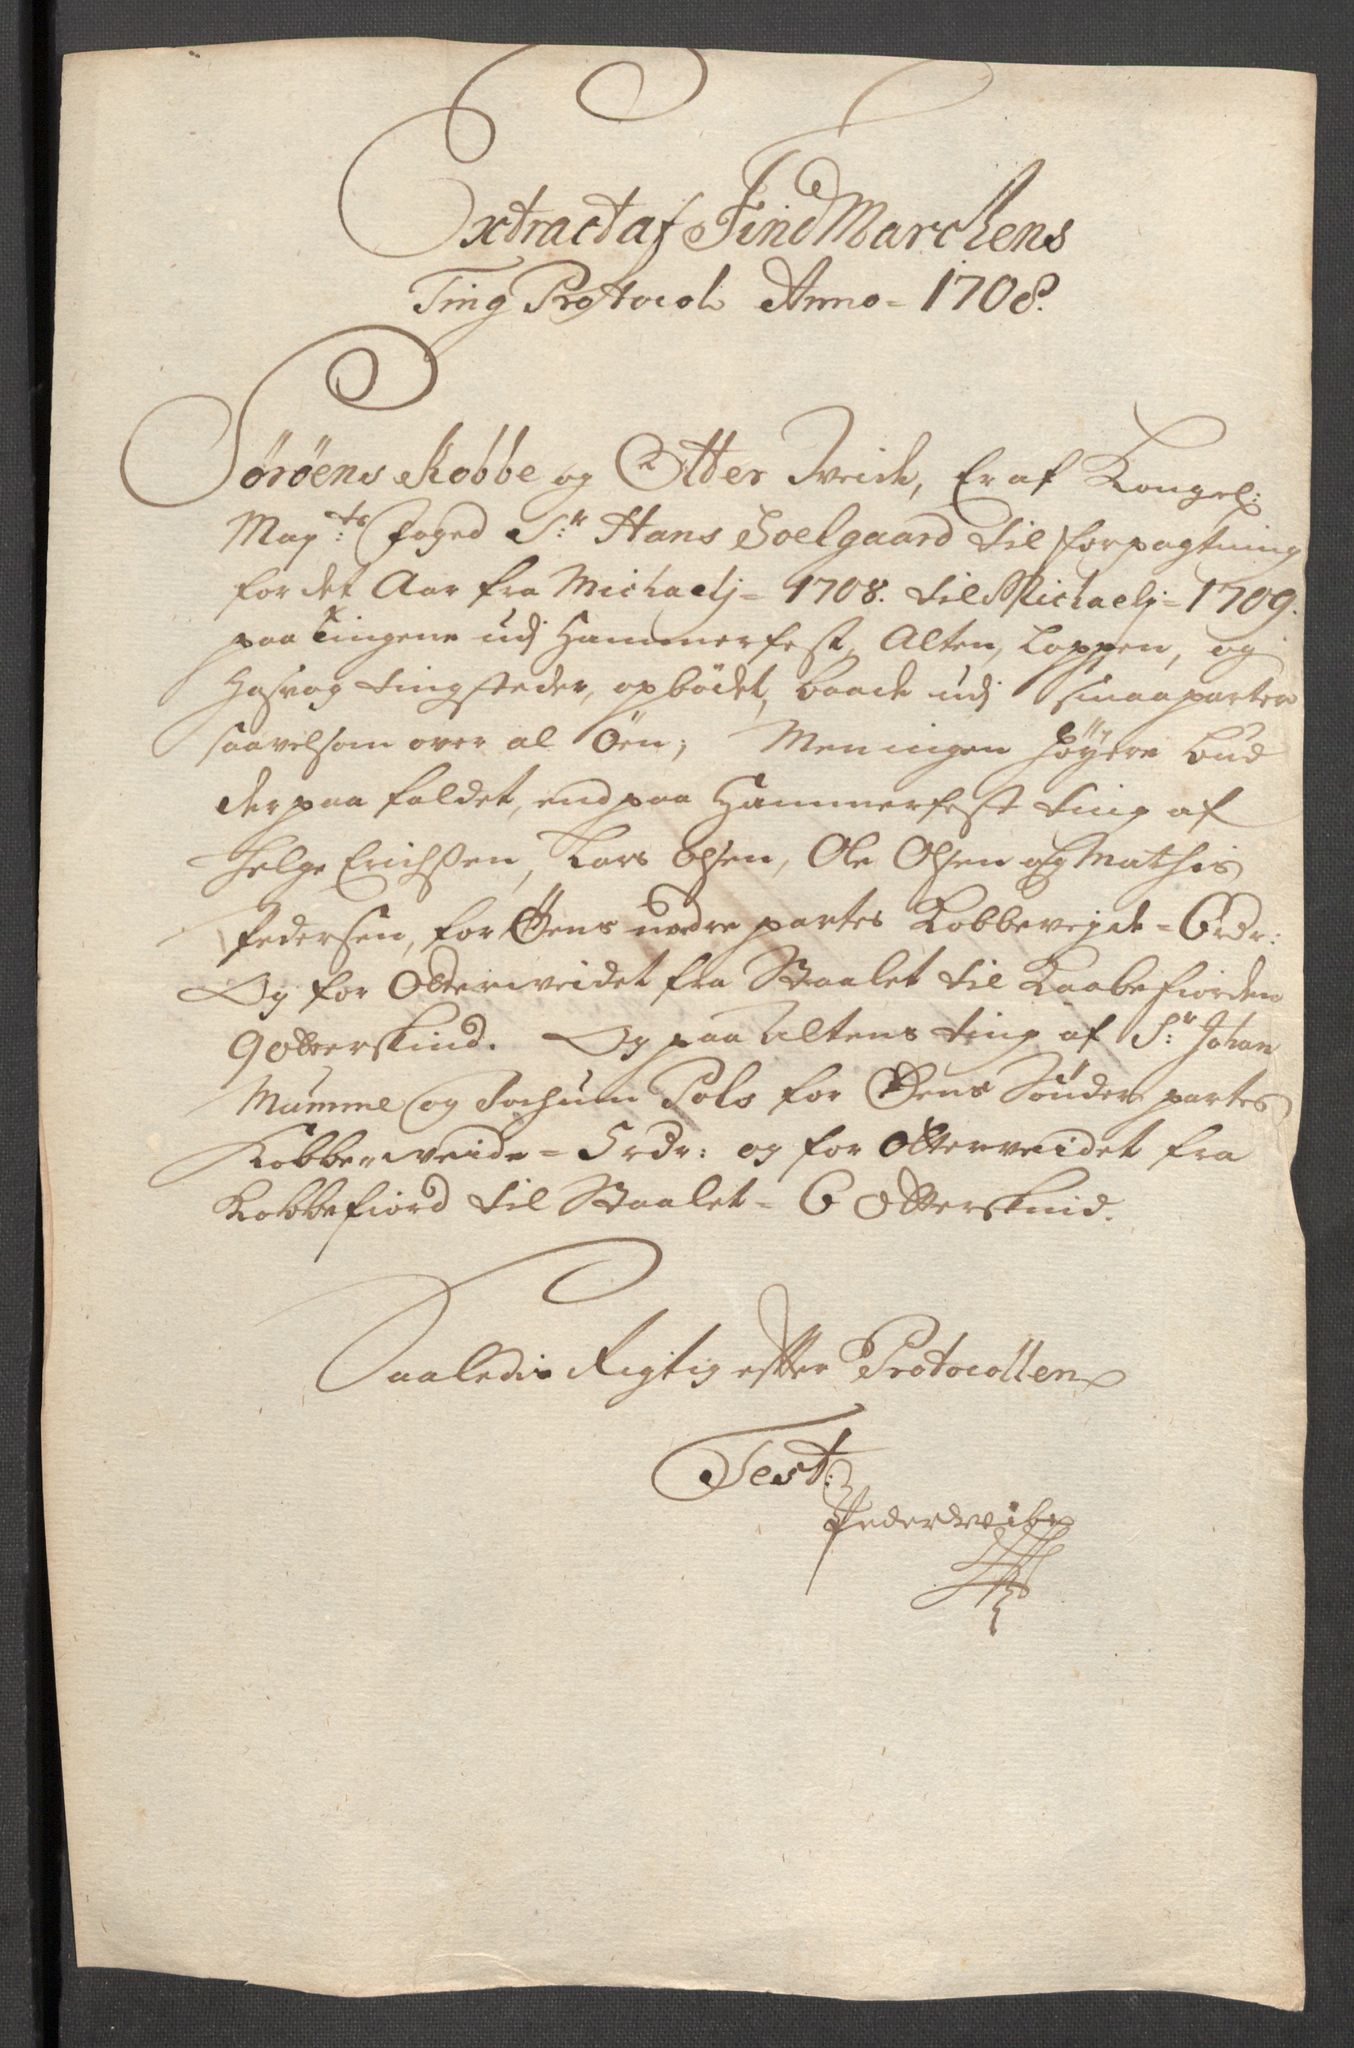 Extract af FindMarchens
Ting Protocol Anno = 1708.
Söröens Kobbe og Otter Weide, Er af Kongel:
May:ts Foged S:r Hans Soelgaard til forpagtning
for det Aar fra Michaelj = 1708. til Michaelj = 1709.
paa Tingene udj Hammerfest, Alten, Loppen, og
Hasvog tingsteder, opbödet, baade udj smaa parter
saavelsom over al Öen; Men ingen höyere bud
der paa faldet, end paa Hammerfest ting af
Helge Erichsen, Lars Olsen, Ole Olsen og Mathis
Pedersen, for Öens nordre partes Kobbevejde = 6 rdr:
Og for Otterweidet fra Staalet til Kaabefiorden
9 otterskind. Og paa Altens ting af S:r Johan
Mumme og Jochum Pols for Öens Sönder partes
Kobberweide = 5 rdr: og for Otterveidet fra
Kobbefiord til Staalet = 6 Otterskind.
Saaledis Rigtig efter Protocollen
Test:
Peder Wibe